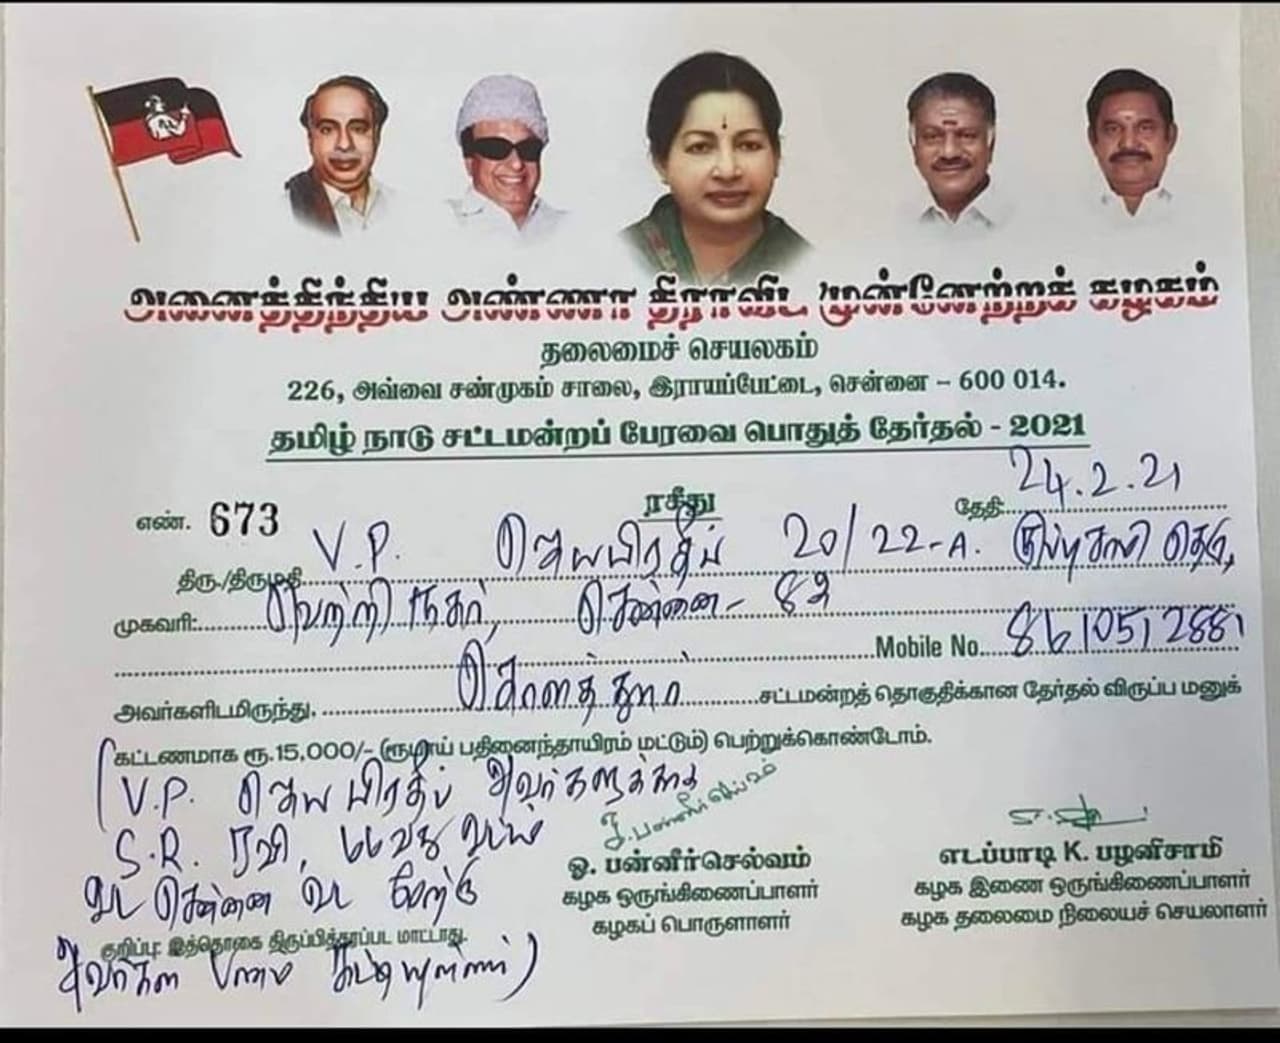 அனைத்திந்திய அண்ணா திராவிட முன்னேற்றக் கழகம்
தலைமைச் செயலகம்
226, அவ்வை சண்முகம் சாலை, இராயப்பேட்டை, சென்னை – 600 014.
தமிழ் நாடு சட்டமன்றப் பேரவை பொதுத் தேர்தல் - 2021
எண். 673 ரசீது தேதி 24.2.21
திரு./திருமதி V.P. ஜெயபிரதீப் 20/22-A.
முகவரி: வெற்றி நகர், சென்னை - 82
Mobile No. 8610512881
அவர்களிடமிருந்து, கொளத்தூர் சட்டமன்றத் தொகுதிக்கான தேர்தல் விருப்ப மனுக்
கட்டணமாக ரூ.15,000/- (ரூபாய் பதினைந்தாயிரம் மட்டும்) பெற்றுக்கொண்டோம்.
(V.P. ஜெயபிரதீப் அவர்களுக்காக
S.R. ரவி, 66வது வட்டம்
வட சென்னை வட கிழக்கு
ஓ. பன்னீர்செல்வம்
ஓ. பன்னீர்செல்வம்
கழக ஒருங்கிணைப்பாளர்
கழகப் பொருளாளர்
எடப்பாடி K. பழனிசாமி
கழக இணை ஒருங்கிணைப்பாளர்
கழக தலைமை நிலையச் செயலாளர்
குறிப்பு: இத்தொகை திருப்பித்தரப்பட மாட்டாது.
அவர்கள் பணம் கட்டியுள்ளார்)